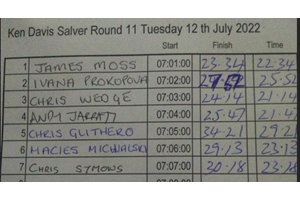 Ken Davis Salver Round 11 Tuesday 12 th July 2022
Start Finish Time
1 JAMES MOSS 07:01:00 23.34 22.34
2 IVANA PROKOPOVA 07:02:00
3 CHRIS WEDGE 07:03:00 24.14 21.14
4 ANDY JARRATT 07:04:00 25.47 21.4
5 CHRIS GLITHERO 07:05:00 34.21 29.2
6 MACIES MICHALSKI 07:06:00 29.13 23.13
7 CHRIS SYMONS 07:07:00 30.18 23.